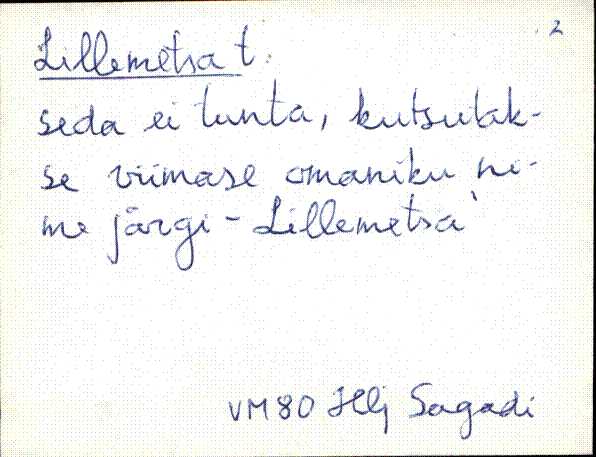 2
Lillemetsa t.
seda ei tunta, kutsutak-
se viimase omaniku ni-
me järgi - Lillemetsa
VM 80 Hlj Sagadi